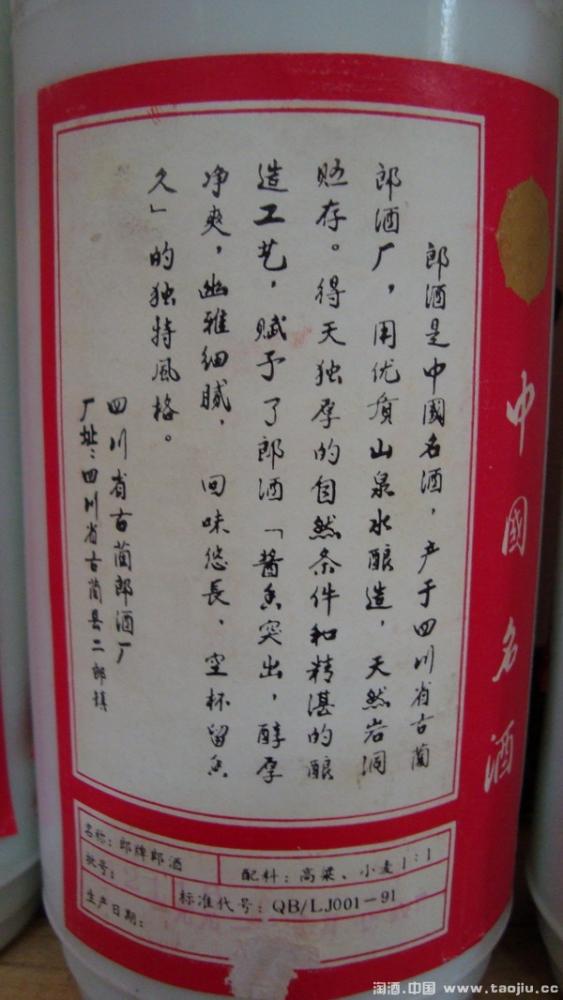 中國名酒
郎酒是中國名酒，产于四川省古蔺
郎酒厂，用优质山泉水酿造，天然岩洞
贮存。得天独厚的自然条件和精湛的酿
造工艺，赋予了郎酒「酱香突出，醇厚
净爽，幽雅细腻，回味悠長，空杯留香
久」的独特風格。
四川省古蔺郎酒厂
厂址：四川省古蔺县二郎镇
名称：郎牌郎酒
配料：高粱、小麦1:1
批号：
标准代号：QB/LJ001-91
生产日期：
淘酒.中国 www.taojiu.cc